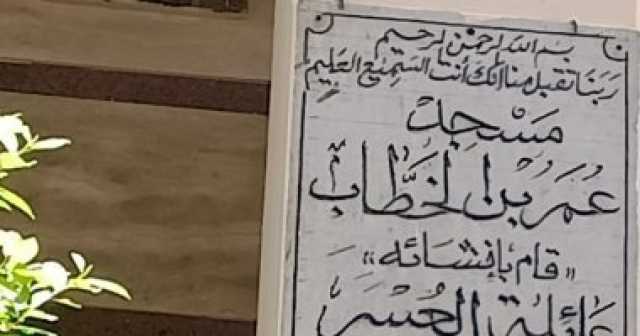 بسم الله الرحمن الرحيم
ربنا تقبل منا إنك أنت السميع العليم
مَسْجِد
عُمَر بْن الخَطَّاب
«قام بإنشائه»
عائلة